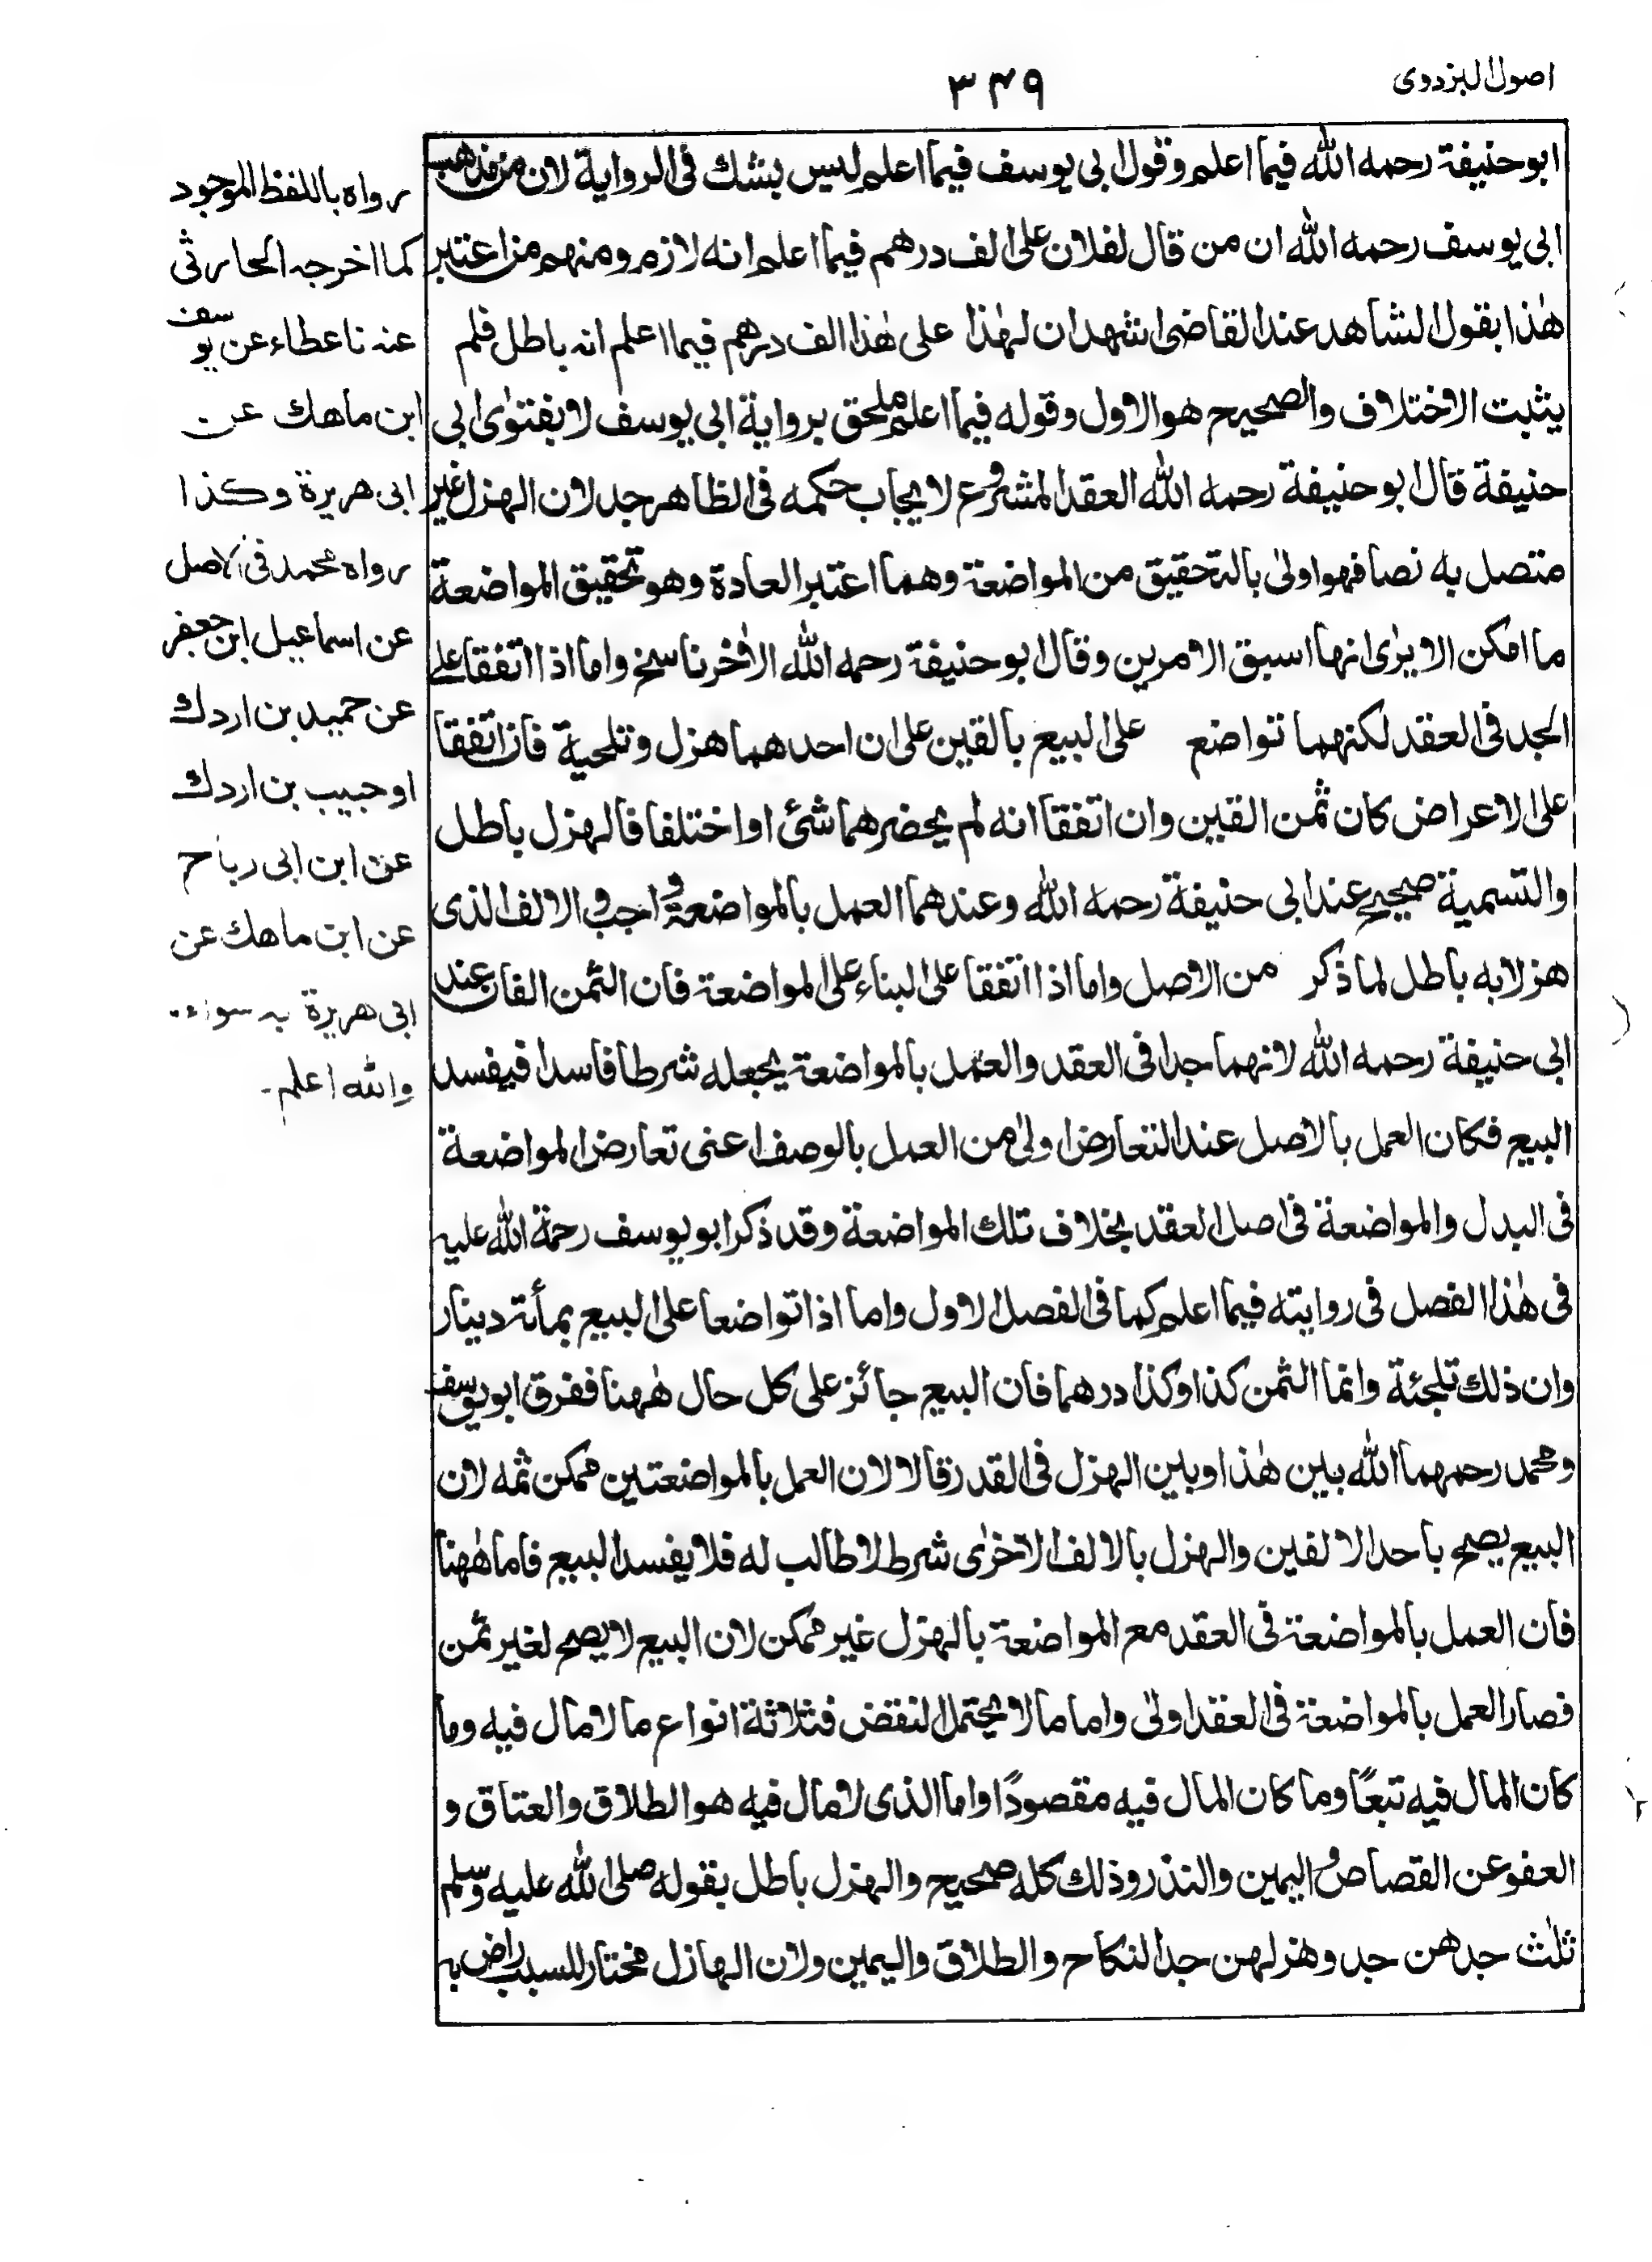 اصول البزدوی
۳۴۹
ابو حنیفة رحمه الله فیما اعلم وقول ابی یوسف فیما اعلم لیس بشك فی الروایة لان من مذهب
ابی یوسف رحمه الله ان من قال لفلان علی الف درهم فیما اعلم انه لازم ومنهم من اعتبر
هٰذا بقول الشاهد عند القاضی اشهد ان لهٰذا علی هٰذا الف درهم فیما اعلم انه باطل فلم
یثبت الاختلاف والصحیح هو الاول وقوله فیما اعلم ملحق بروایة ابی یوسف لا بفتوٰی ابی
حنیفة قال ابو حنیفة رحمه الله العقد المشروع لایجاب حكمه فی الظاهر جد لان الهزل غیر
متصل به نصا فهو اولیٰ بالتحقیق من المواضعة وهما اعتبر العادة وهو تحقیق المواضعة
ما امكن الا یرٰی انها اسبق الامرین وقال ابو حنیفة رحمه الله الاٰخر ناسخ واما اذا اتفقا علی
الجد فی العقد لكنهما تواضع علی البیع بالفین علی ان احدهما هزل وتلجیة فان اتفقا
علی الاعراض كان ثمن الفین وان اتفقا انه لم یحضرهما شئ او اختلفا فالهزل باطل
والتسمیة صحیح عند ابی حنیفة رحمه الله وعندهما العمل بالمواضعة واجب والالف الذی
هزلا به باطل لما ذكر من الاصل واما اذا اتفقا علی البناء علی المواضعة فان الثمن الفان عند
ابی حنیفة رحمه الله لانهما جدا فی العقد والعمل بالمواضعة یجعله شرطا فاسدا فیفسد
البیع فكان العمل بالاصل عند التعارض اولیٰ من العمل بالوصف اعنی تعارض المواضعة
فی البدل والمواضعة فی اصل العقد بخلاف تلك المواضعة وقد ذكر ابو یوسف رحمة الله علیه
فی هٰذا الفصل فی روایته فیما اعلم كما فی الفصل الاول واما اذا تواضعا علی البیع بمأته دینار
وان ذلك تلجئة وانما الثمن كذا وكذا درهما فان البیع جائز علی كل حال هٰهنا ففرق ابو یوسف
ومحمد رحمهما الله بین هٰذا وبین الهزل فی القدر قالا لان العمل بالمواضعتین ممكن ثمه لان
البیع یصح باحد الالفین والهزل بالالف الاخرٰی شرط لا طالب له فلا یفسد البیع فاما هٰهنا
فان العمل بالمواضعة فی العقد مع المواضعة بالهزل غیر ممكن لان البیع لا یصح لغیر ثمن
فصار العمل بالمواضعة فی العقد اولیٰ واما ما لا یحتمل النقض فثلاثة انواع ما لا مال فیه وما
كان المال فیه تبعًا وما كان المال فیه مقصودًا واما الذی لا مال فیه هو الطلاق والعتاق و
العفو عن القصاص والیمین والنذر وذلك كله صحیح والهزل باطل بقوله صلی الله علیه وسلم
ثلٰث جدهن جد وهزلهن جد النكاح والطلاق والیمین ولان الهازل مختار للسبب راض به
رواه باللفظ الموجود
كما اخرجه الحارثی
عنه نا عطاء عن یوسف
ابن ماهك عن
ابی هریرة وكذا
رواه محمد فی الاصل
عن اسماعیل ابن جعفر
عن حمید بن اردك
او حبیب بن اردك
عن ابن ابی رباح
عن ابن ماهك عن
ابی هریرة به سواء۔
والله اعلم۔